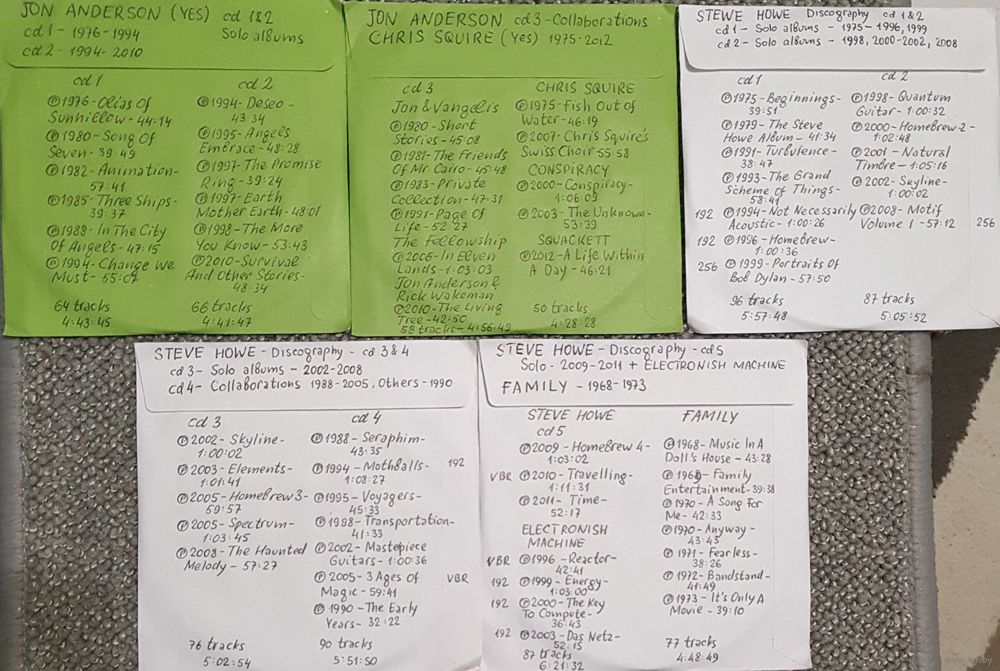 JON ANDERSON (YES) cd 1&2
cd 1 - 1976-1994 Solo albums
cd 2 - 1994-2010
cd 1
℗1976-Olias Of
Sunhillow-44:14
℗1980-Song Of
Seven-39:49
℗1982-Animation-
57:41
℗1985-Three Ships-
39:37
℗1988-In The City
Of Angels-47:15
℗1994-Change We
Must-55:07
64 tracks
4:43:45
cd 2
℗1994-Deseo-
43:34
℗1995-Angels
Embrace-48:28
℗1997-The Promise
Ring-39:24
℗1997-Earth
Mother Earth-48:01
℗1998-The More
You Know-53:43
℗2010-Survival
And Other Stories-
48:34
66 tracks
4:41:47
JON ANDERSON cd 3-Collaborations
CHRIS SQUIRE (Yes) 1975-2012
cd 3
Jon & Vangelis
℗1980-Short
Stories-45:08
℗1981-The Friends
Of Mr. Cairo-45:48
℗1983-Private
Collection-47:31
℗1991-Page Of
Life-52:27
The Fellowship
℗2006-In Elven
Lands-1:03:03
Jon Anderson &
Rick Wakeman
℗2010-The Living
Tree-42:50
58 tracks-4:56:49
CHRIS SQUIRE
℗1975-Fish Out of
Water-46:19
℗2007-Chris Squire's
Swiss Choir-55:58
CONSPIRACY
℗2000-Conspiracy-
1:06:09
℗2003-The Unknown-
53:39
SQUACKETT
℗2012-A Life Within
A Day-46:21
50 tracks
4:28:28
STEWE HOWE Discography cd 1&2
cd 1 - Solo albums - 1975-1996,1999
cd 2 - Solo albums - 1998, 2000-2002, 2008
cd 1
℗1975-Beginnings-
39:51
℗1979-The Steve
Howe Album-41:34
℗1991-Turbulence-
38:47
℗1993-The Grand
Scheme of Things-
58:41
192 ℗1994-Not Necessarily
Acoustic-1:00:26
192 ℗1996-Homebrew-
1:00:36
256 ℗1999-Portraits Of
Bob Dylan-57:50
96 tracks
5:57:48
cd 2
℗1998-Quantum
Guitar-1:00:32
℗2000-Homebrew 2-
1:02:48
℗2001-Natural
Timbre-1:05:16
℗2002-Skyline-
1:00:02
℗2008-Motif
Volume 1-57:12 256
87 tracks
5:05:52
STEVE HOWE-Discography-cd 3&4
cd 3-Solo albums-2002-2008
cd 4-Collaborations 1988-2005, Others-1990
cd 3
℗2002-Skyline-
1:00:02
℗2003-Elements-
1:01:41
℗2005-Homebrew 3-
59:57
℗2005-Spectrum-
1:03:45
℗2008-The Haunted
Melody-57:27
76 tracks
5:02:54
cd 4
℗1988-Seraphim-
43:35
℗1994-Mothballs- 192
1:08:27
℗1995-Voyagers-
45:33
℗1998-Transportation-
41:33
℗2002-Mastepiece
Guitars-1:00:36
℗2005-3 Ages of VBR
Magic-59:41
℗1990-The Early
Years-32:22
90 tracks
5:51:50
STEVE HOWE-Discography-cd 5
Solo-2009-2011 + ELECTRONISH MACHINE
FAMILY - 1968-1973
STEVE HOWE
cd 5
℗2009-Homebrew 4-
1:03:02
VBR ℗2010-Travelling-
1:11:31
℗2011-Time-
52:17
ELECTRONISH
MACHINE
VBR ℗1996-Reactor-
42:41
192 ℗1999-Energy-
1:03:00
192 ℗2000-The Key
To Compute-
36:43
192 ℗2003-Das Netz-
52:15
87 tracks
6:21:32
FAMILY
℗1968-Music In A
Doll's House-43:28
℗1969-Family
Entertainment-39:38
℗1970-A Song For
Me-42:33
℗1970-Anyway-
43:43
℗1971-Fearless-
38:26
℗1972-Bandstand-
41:49
℗1973-It's Only A
Movie-39:10
77 tracks
4:48:49